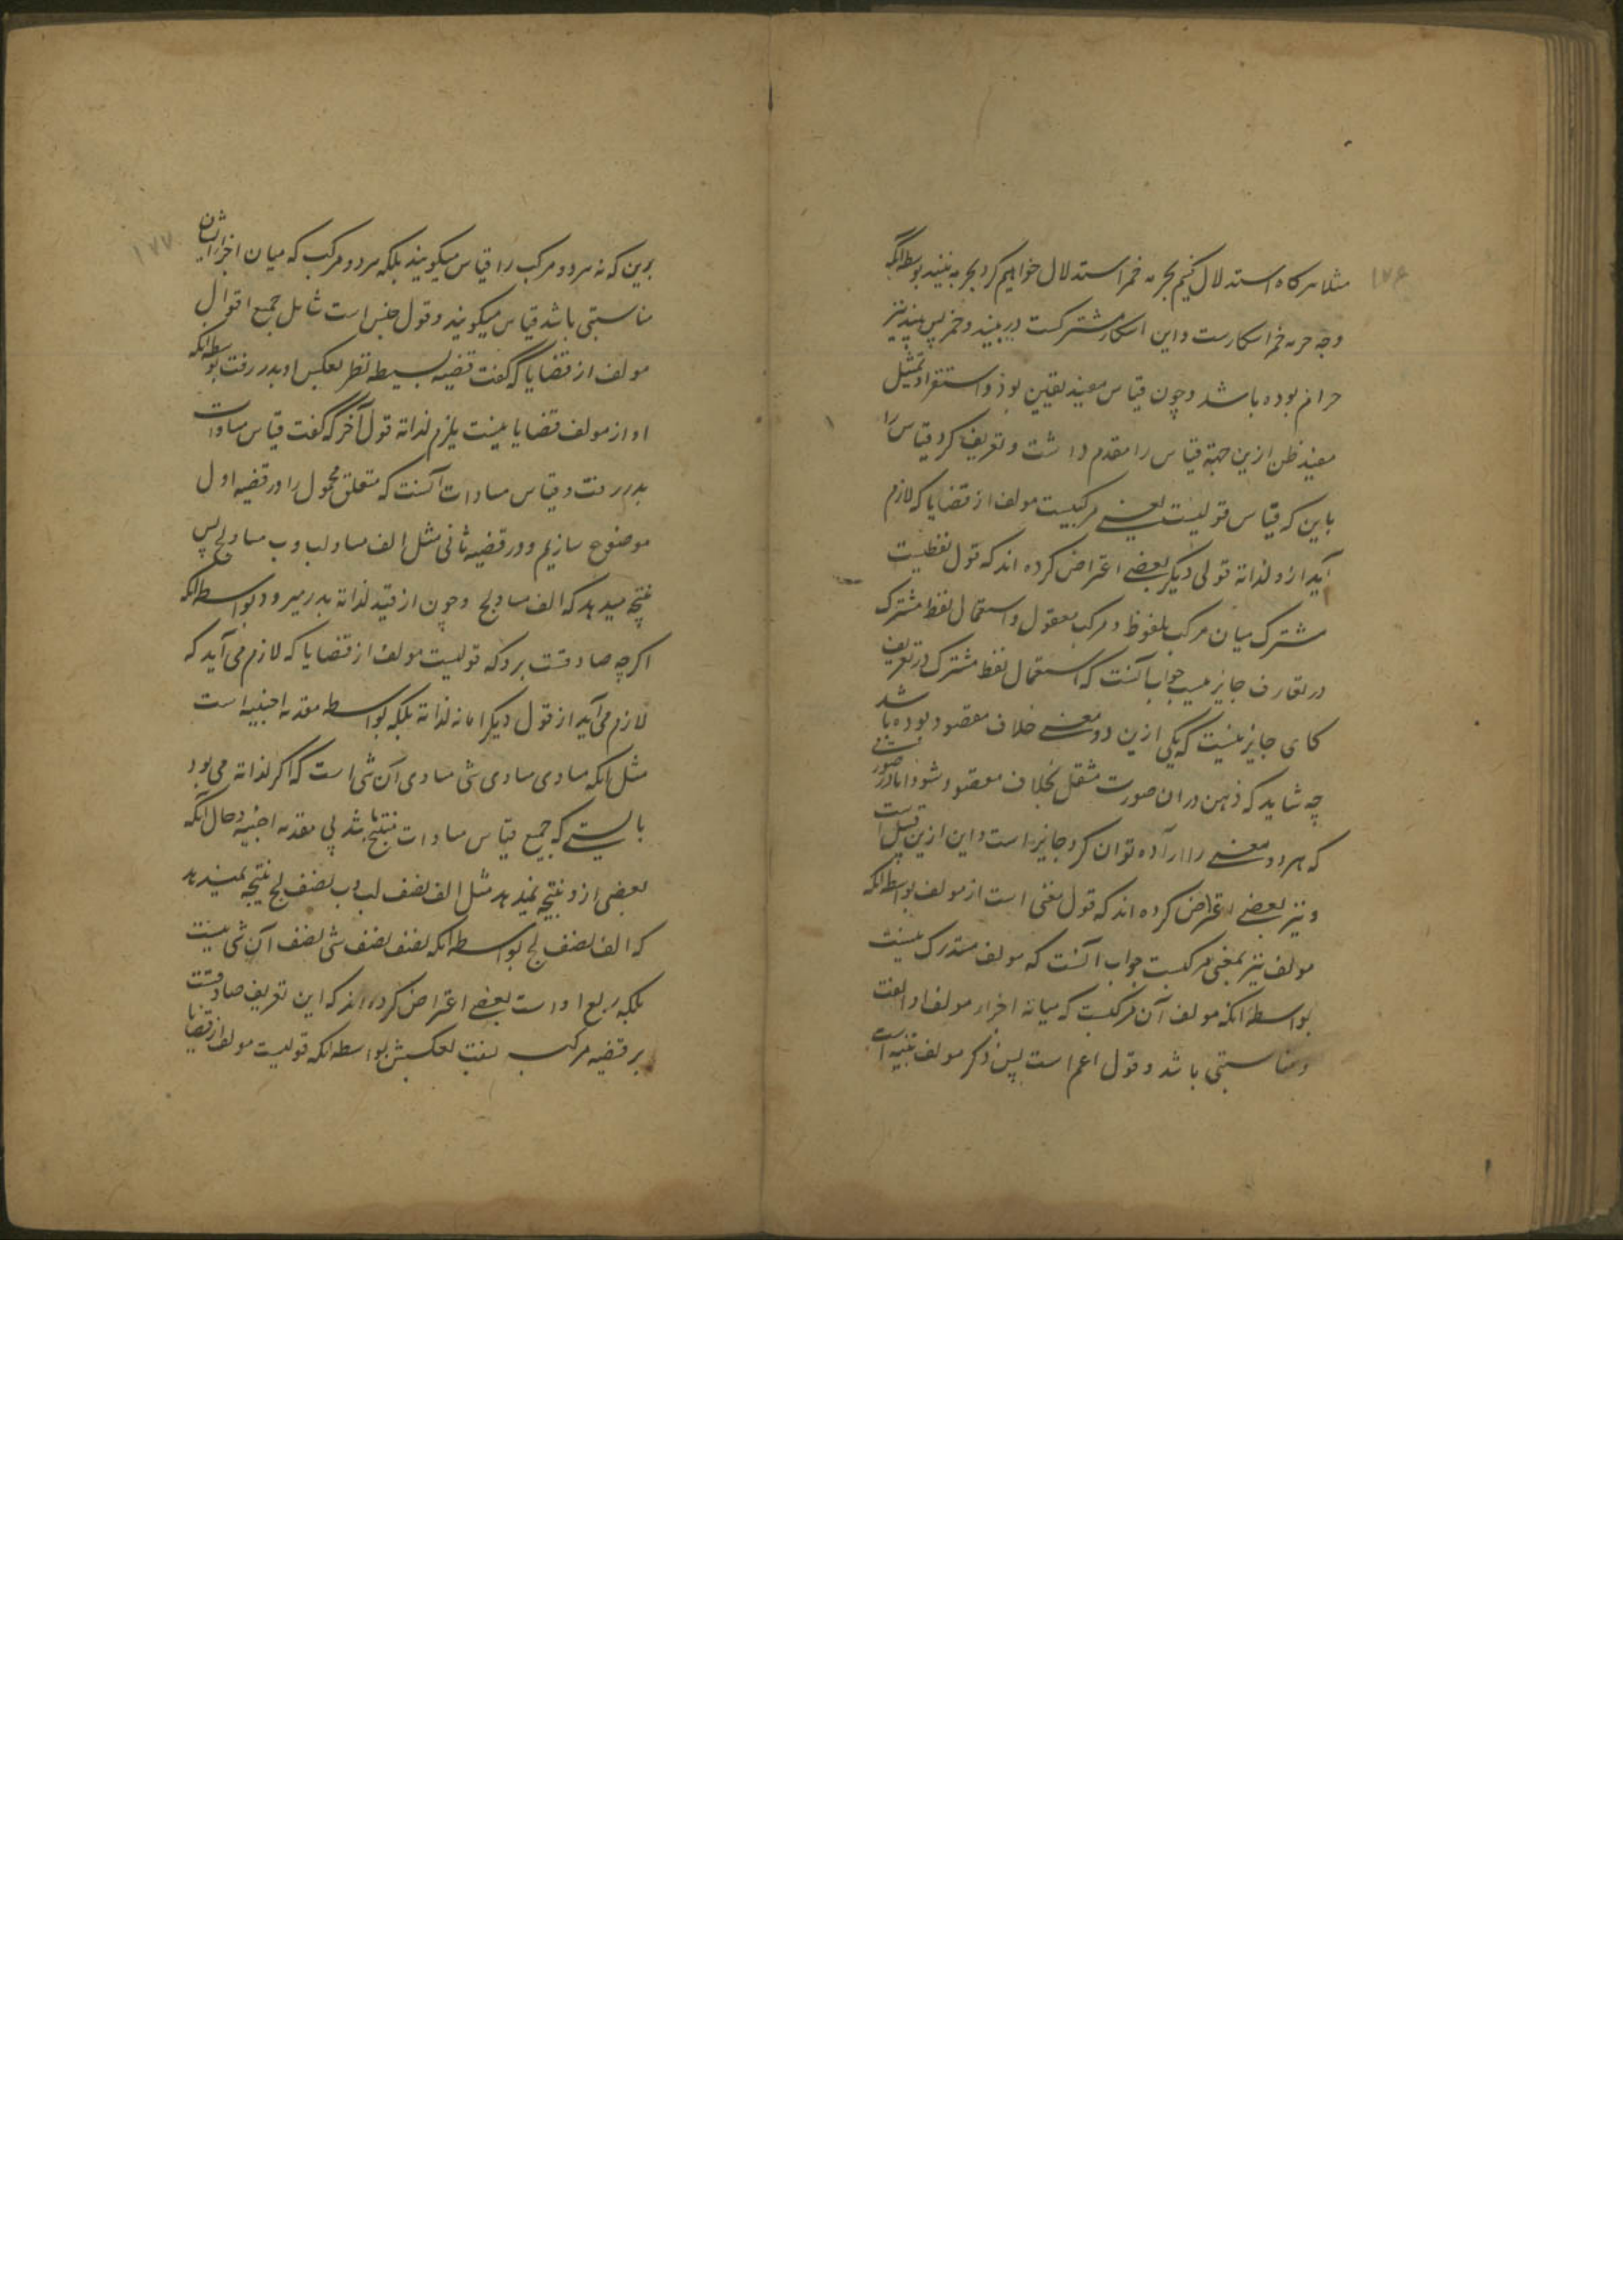 ۱۷۶
مثلا هرگاه استدلال کنیم بحرمه خمر استدلال خواهیم کرد بحرمه نبیند بواسطه آنکه
وجه حرمه خمر اسکارست و این اسکار مشترکست در نبیند و خمر پس نبیند نیز
حرام بوده باشد و چون قیاس مفید یقین بود و استقرا و تمثیل
مفید ظن ازین جهة قیاس را مقدم داشت و تعریف کرد قیاس را
باین که قیاس قولیست یعنی مرکبیست مولف از قضایا که لازم
آید ازو لذاته قولی دیگر بعضی اعتراض کرده اند که قول لفظیست
مشترک میان مرکب ملفوظ و مرکب معقول و استعمال لفظ مشترک
در تعارف جایز نیست جواب آنست که استعمال لفظ مشترک در تعریف
کاهی جایز نیست که یکی ازین دو معنی خلاف مقصود بوده باشد
چه شاید که ذهن در ان صورت منتقل بخلاف مقصود شود اما در صورتی
که هر دو معنی را اراده توان کرد جایز است و این ازین قبیل است
و نیز بعضی اعتراض کرده اند که قول مغنی است از مولف بواسطه آنکه
مولف نیز بمعنی مرکبست جواب آنست که مولف مستدرک نیست
بواسطه آنکه مولف آن مرکبست که میانه اجزاء مولف او الفت
و مناسبتی باشد و قول اعم است پس ذکر مولف تنبیه است
۱۷۷
برین که نه هر دو مرکب را قیاس میگویند بلکه هر دو مرکب که میان اجزاء ایشان
مناسبتی باشد قیاس میگویند و قول جنس است شامل جمیع اقوال
مولف از قضایا که گفت قضیه بسیطه نظر بعکس او بدر رفت بواسطه آنکه
او از مولف قضایا نیست یلزم لذاته قول آخر که گفت قیاس مساوات
بدر رفت و قیاس مساوات آنست که متعلق محمول را در قضیه اول
موضوع سازیم و در قضیه ثانی مثل الف مساو لب و ب مساو لج پس
نتیجه میدهد که الف مساو لج و چون از قید لذاته بدر میرود بواسطه آنکه
اگرچه صادقست برو که قولیست مولف از قضایا که لازم می آید که
لازم می آید از قول دیگر اما نه لذاته بلکه بواسطه مقدمه اجنبیه است
مثل آنکه مساوی مساوی شی مساوی آن شی است که اگر لذاته می بود
بایستی که جمیع قیاس مساوات منتج باشد بی مقدمه اجنبیه و حال آنکه
بعضی ازو نتیجه نمیدهد مثل الف نصف لب و ب نصف لج نتیجه نمیدهد
که الف نصف لج بواسطه آنکه نصف نصف شی نصف آن شی نیست
بلکه ربع اواست بعضی اعتراض کرده اند که این تعریف صادقست
بر قضیه مرکب نسبت بعکسش بواسطه آنکه قولیست مولف از قضایا